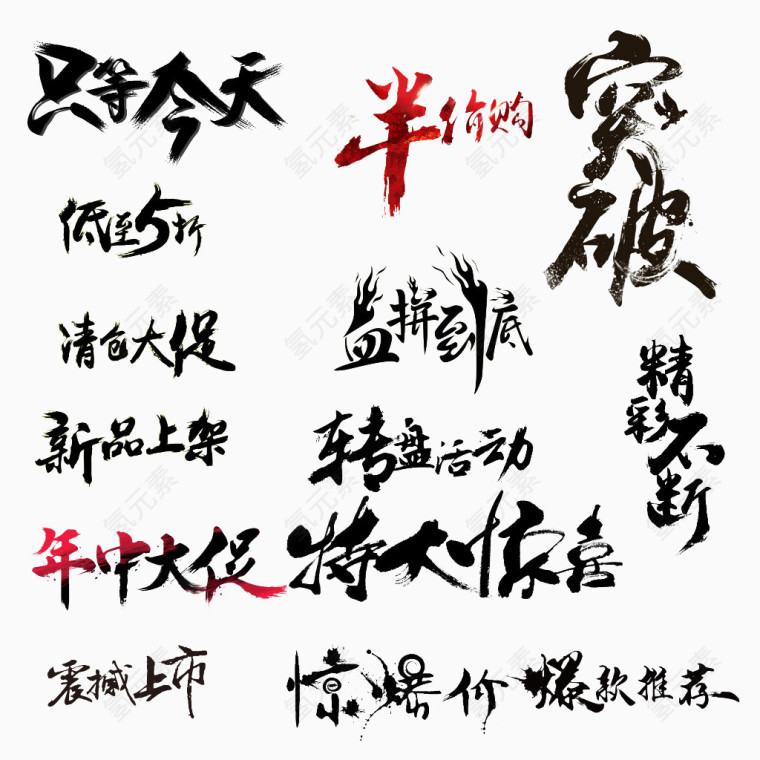 只等今天
半价购
突破
低至5折
血拼到底
清仓大促
精彩不断
新品上架
转盘活动
年中大促
特大惊喜
震撼上市
惊爆价
爆款推荐
氢元素